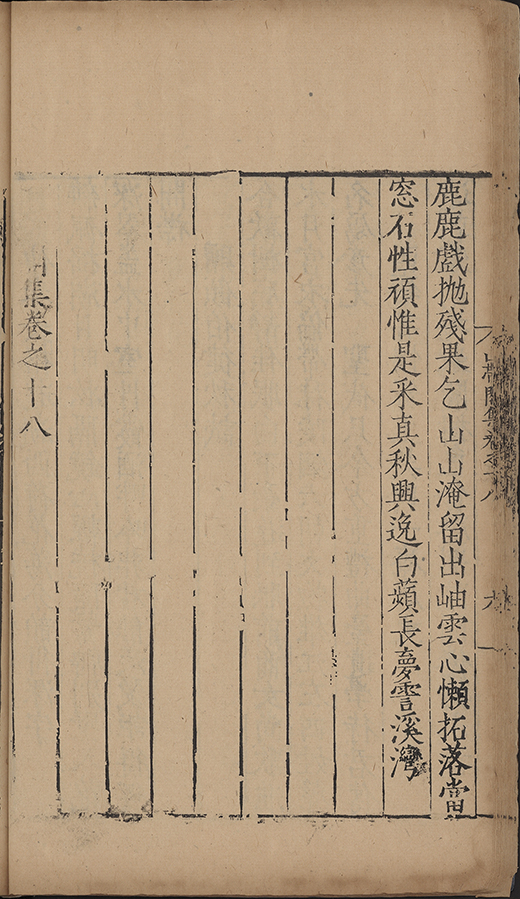 集卷之十八 六
鹿鹿戲拋殘果乞山山淹留出岫雲心懶拓落當
窓石性頑惟是采真秋興逸白蘋長夢霅溪灣
集卷之十八